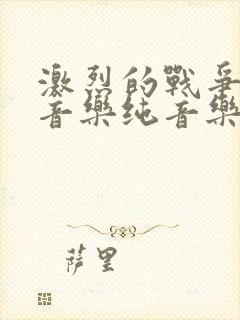 激烈的戰爭
音樂纯音樂
萨里